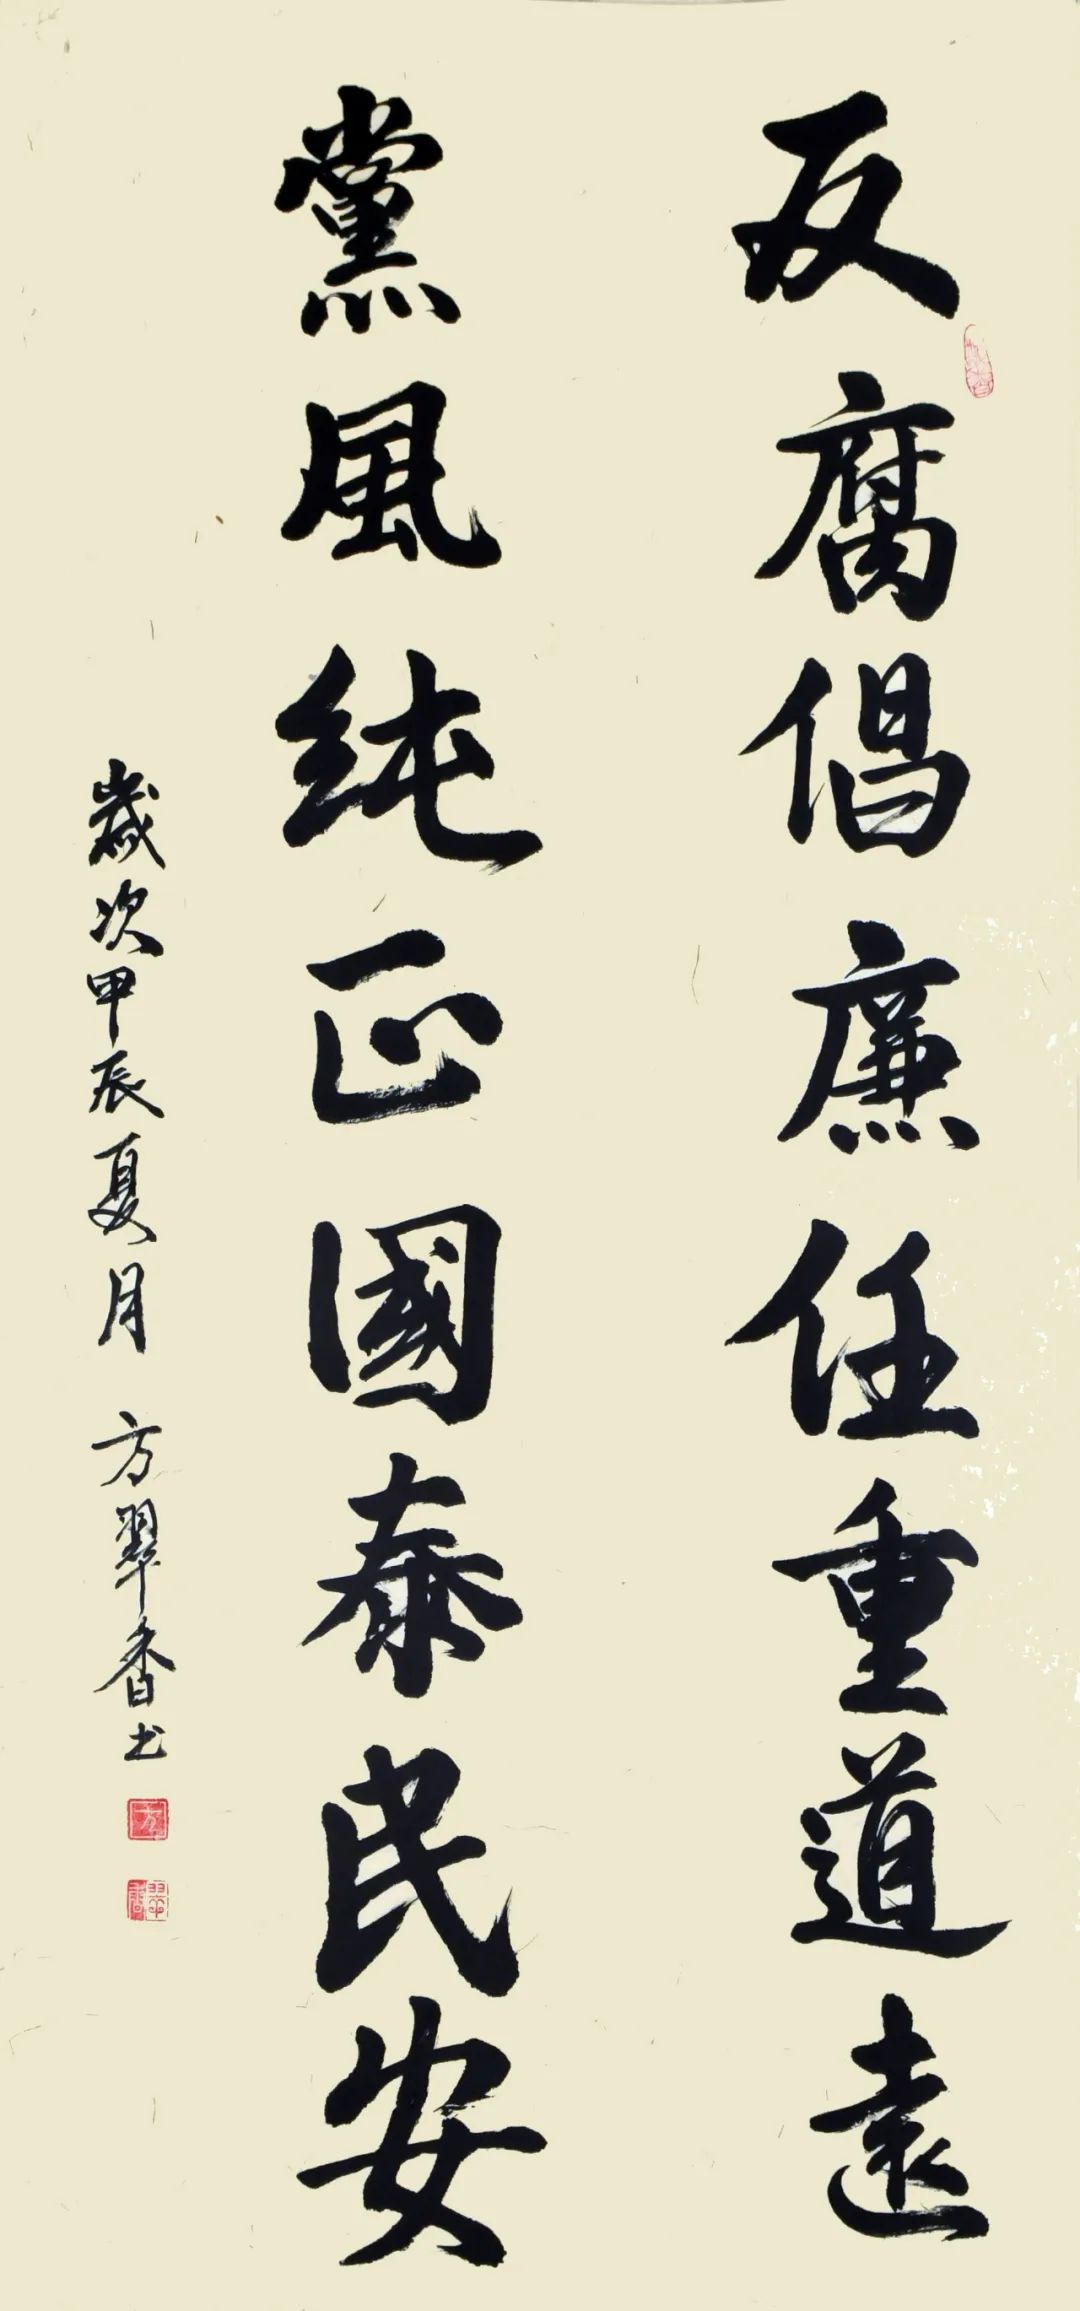 反腐倡廉任重道遠
黨風纯正國泰民安
歲次甲辰夏月 方翠香书